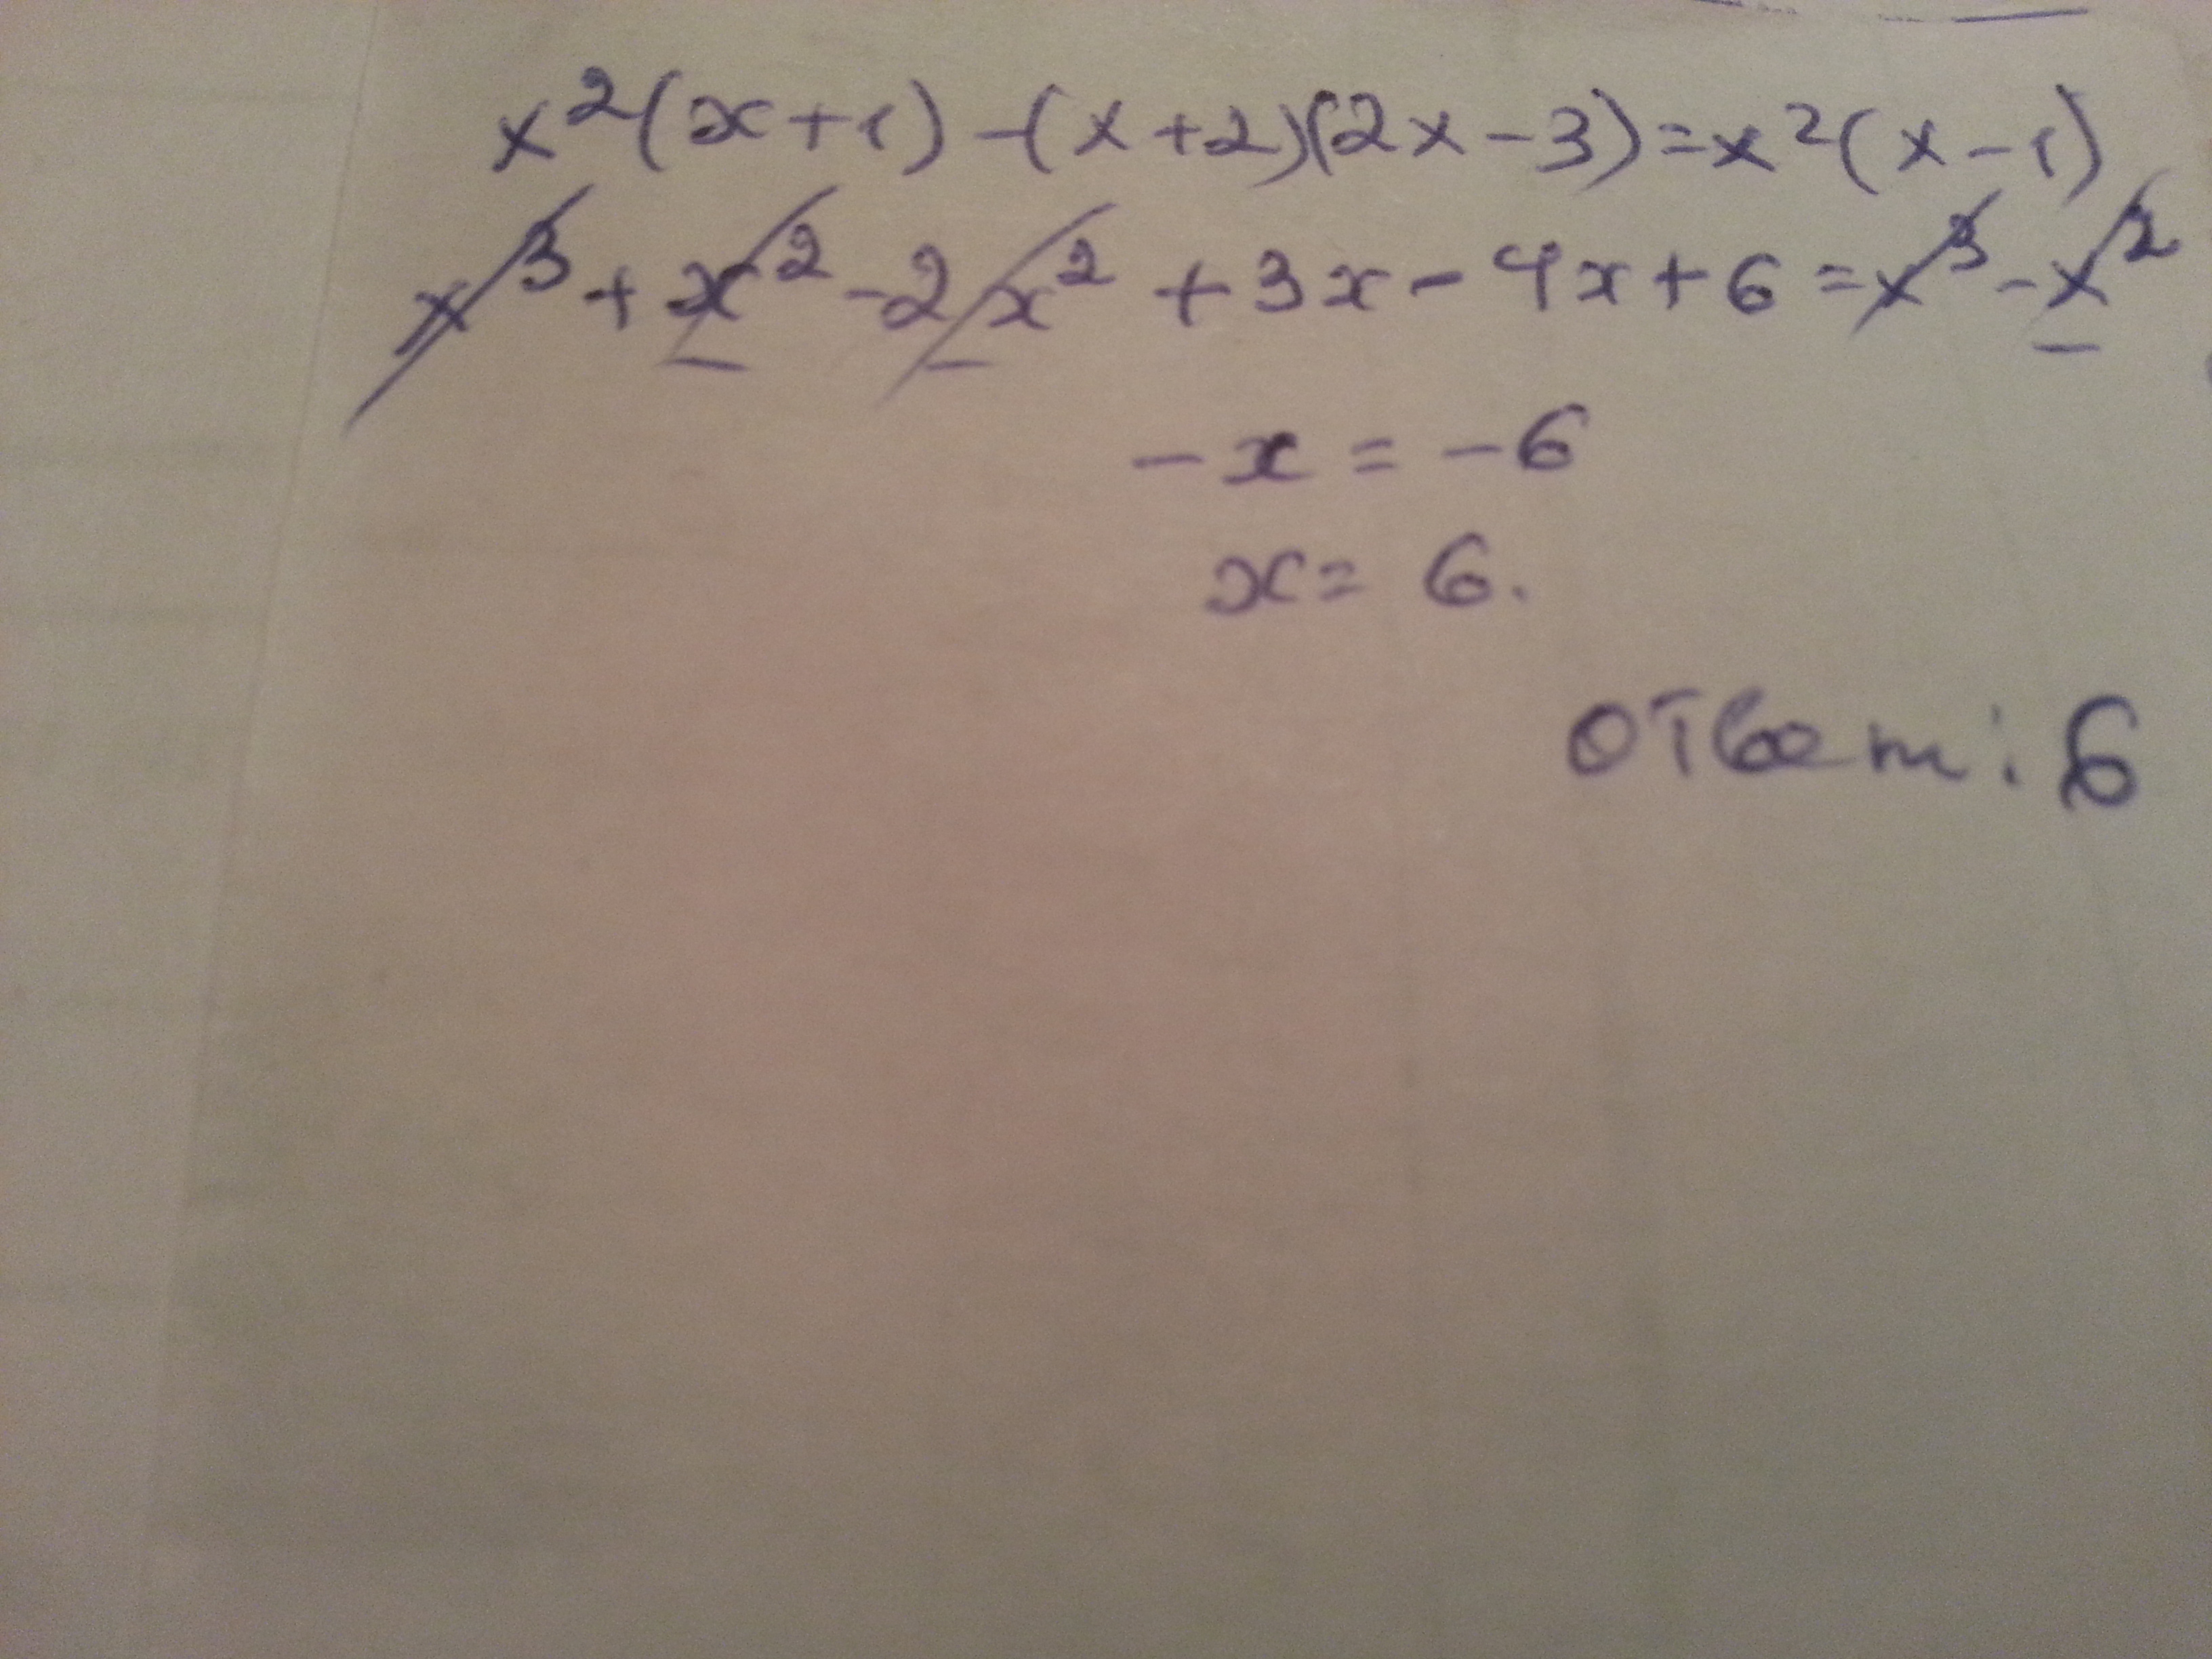 x²(x+1)-(x+2)(2x-3)=x²(x-1)
x³+x²-2x²+3x-4x+6=x³-x²
-x=-6
x=6.
ответ: 6